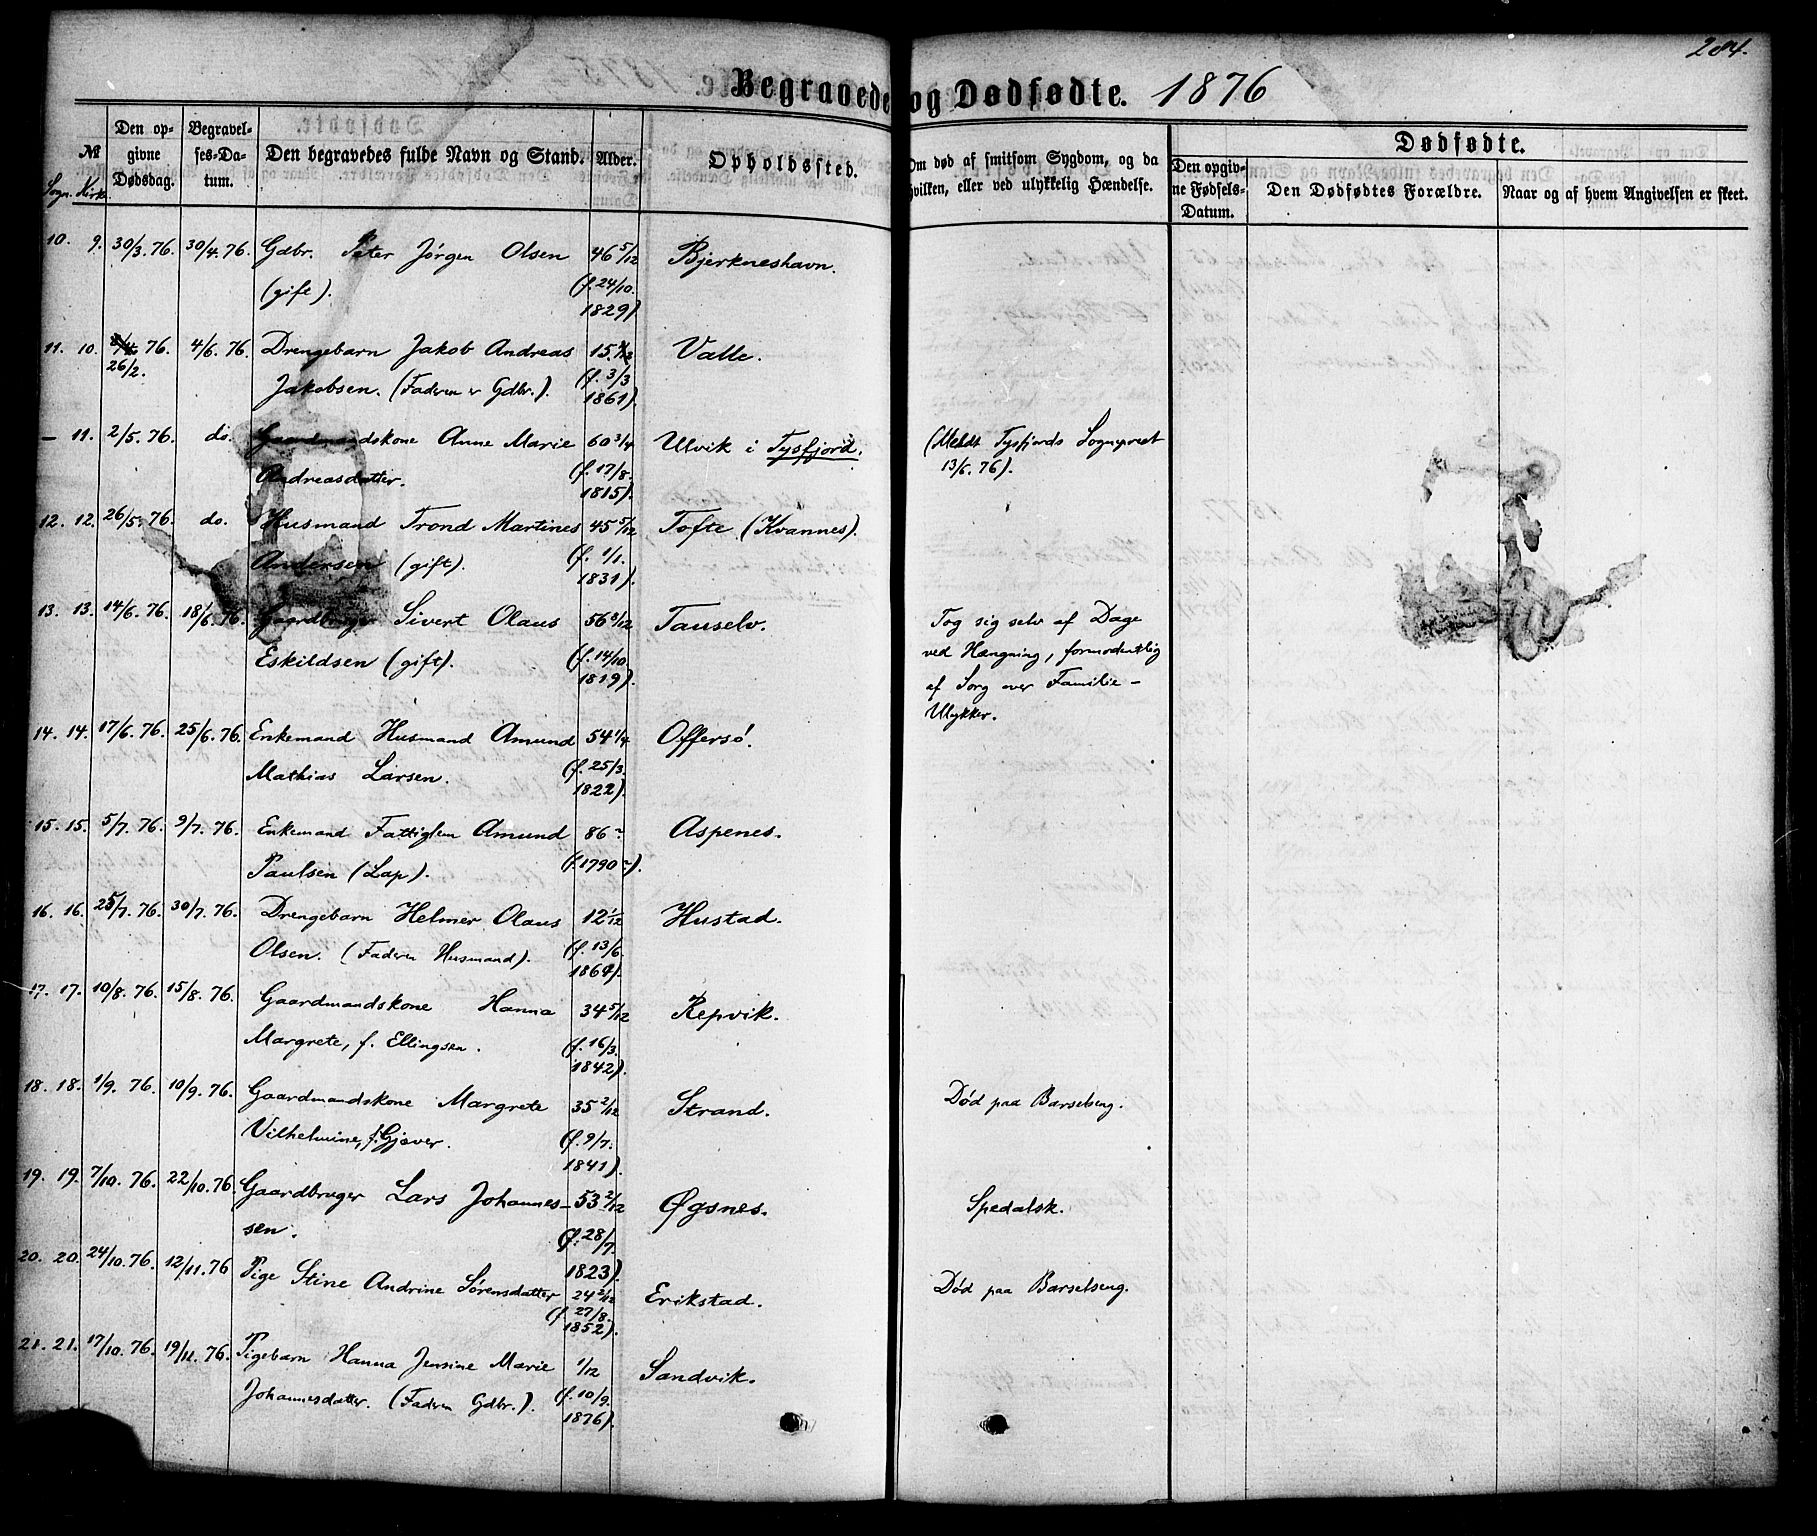 284.
Begravede og Dødfødte. 1876
№
Sogn. Kirke.
Den opgivne Dødsdag.
Begravelses-Datum.
Den begravedes fulde Navn og Stand.
Alder.
Opholdssted.
Om død af smitsom Sygdom, og da hvilken, eller ved ulykkelig Hændelse.
Dødfødte.
Den opgivne Fødsels-Datum.
Den Dødfødtes Forældre.
Naar og af hvem Angivelsen er skeet.
10. 9. 30/3. 76. 30/4. 76. Gdbr. Peter Jørgen Olsen 46 5/12 Bjerkneshavn.
(gift). (f. 24/10.
1829)
11. 10. 76. 4/6. 76. Drengebarn Jakob Andreas 15. Valle.
26/2. Jakobsen. (Faderen er Gdbr.). (f. 3/3
1861).
- 11. 2/5. 76. do. Gaardmandskone Anne Marie 60 3/4 Ulvik i Tysfjord. (Meldt Tysfjords Sognepræst
Andreasdatter. (f. 17/8. 13/6. 76).
1815).
12. 12. 26/5. 76. do. Husmand Trond Martines 45 5/12 Tofte (Kvannes).
Andersen (gift). (f. 1/1.
1831).
13. 13. 14/6. 76. 18/6. 76. Gaardbruger Sivert Olaus 56 8/12 Tauselv. Tog sig selv af Dage
Eskildsen (gift). (f. 14/10. ved Hængning, formodentlig
1819). af Sorg over Familie-
Ulykker.
14. 14. 17/6. 76. 25/6. 76. Enkemand Husmand Amund 54 1/4 Offersø.
Mathias Larsen. (f. 25/3.
1822).
15. 15. 5/7. 76. 9/7. 76. Enkemand Fattiglem Amund 86 ~ Aspenes.
Paulsen (Lap). (f. 1790 ~).
16. 16. 25/7. 76. 30/7. 76. Drengebarn Helmer Olaus 12 1/12 Hustad.
Olsen. (Faderen Husmand). (f. 13/6.
1864).
17. 17. 10/8. 76. 15/8. 76. Gaardmandskone Hanna 34 5/12 Repvik.
Margrete, f. Ellingsen. (f. 16/3.
1842).
18. 18. 1/9. 76. 10/9. 76. Gaardmandskone Margrete 35 2/12 Strand. Død paa Barselseng.
Vilhelmine, f. Gjæver. (f. 9/7.
1841).
19. 19. 7/10. 76. 22/10. 76. Gaardbruger Lars Johannes- 53 2/12 Øgsnes. Spedalsk.
sen. (f. 28/7.
1823).
20. 20. 24/10. 76. 12/11. 76 Pige Stine Andrine Sørensdatter 24 2/12 Erikstad. Død paa Barselseng.
(f. 27/8.
1852).
21. 21. 17/10. 76. 19/11. 76. Pigebarn Hanna Jensine Marie 1/12 Sandvik.
Johannesdatter. (Faderen Gdbr.). (f. 10/9.
1876).